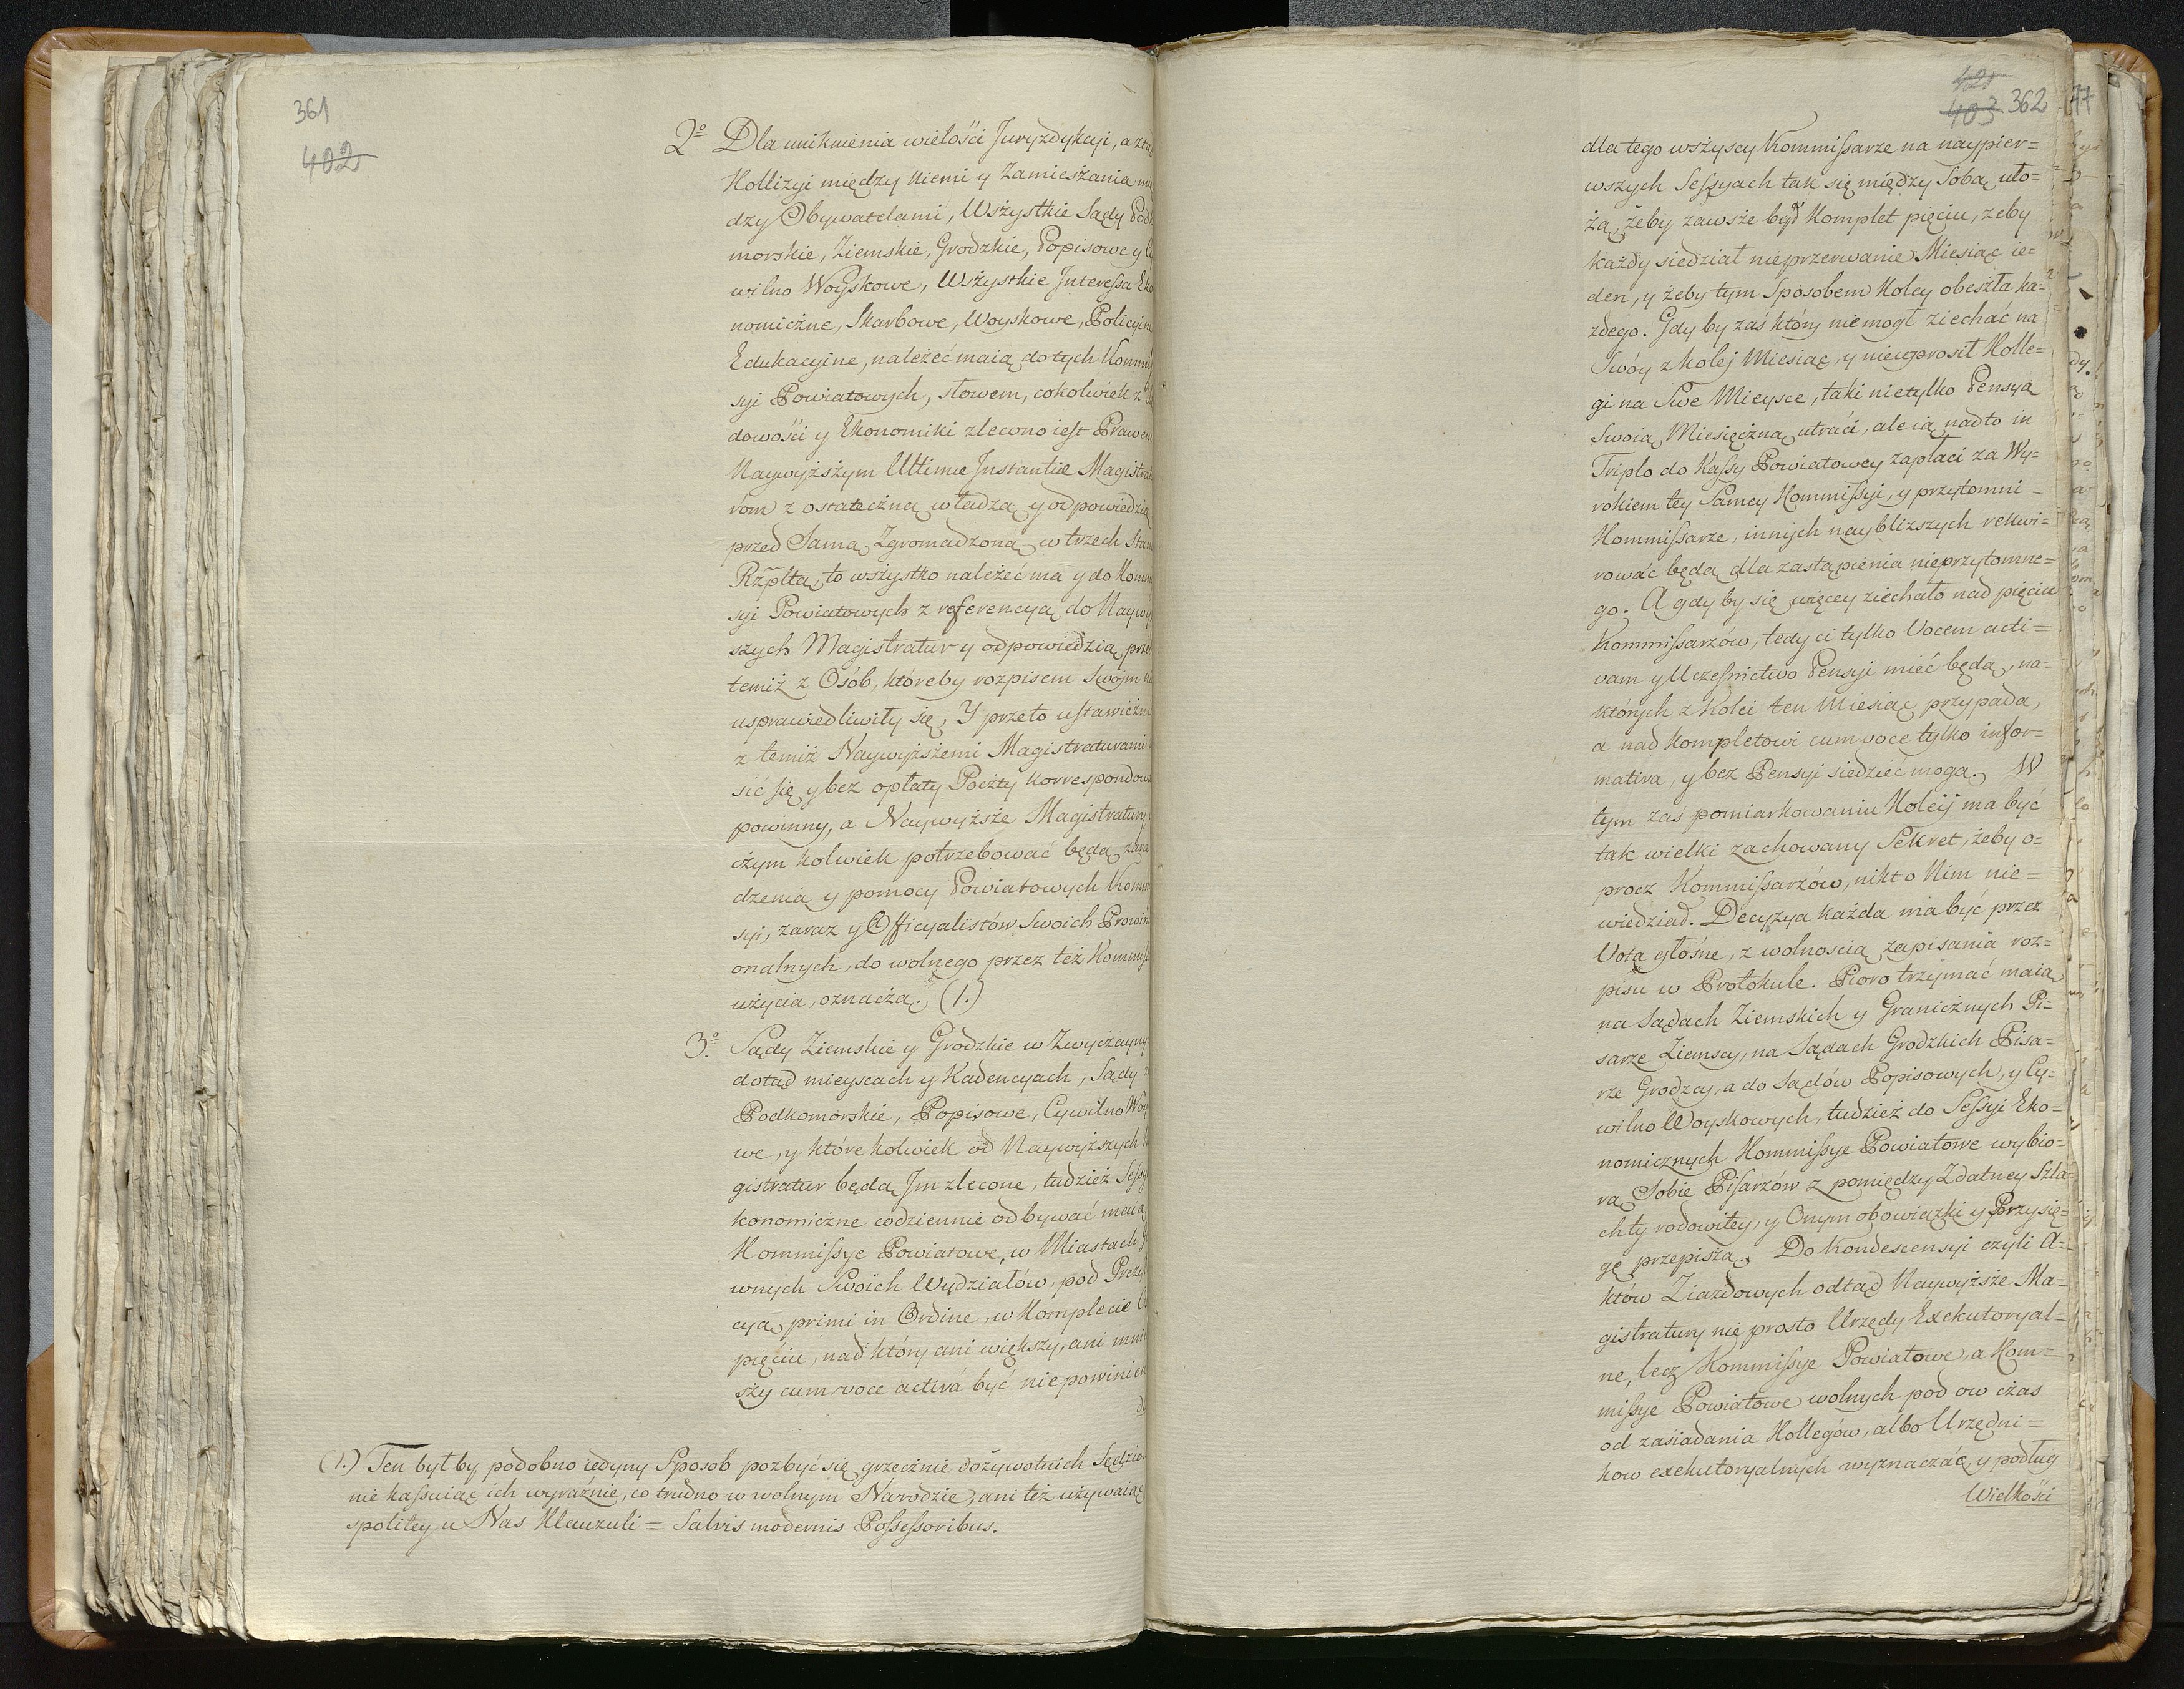 361
402
2º Dla uniknienia wielości Juryzdykcji, a ztąd
Kollizyi między niemi y Zamieszania mię
dzy Obywatelami, Wszystkie Sądy Podko
morskie, Ziemskie, Grodzkie, Popisowe y Cy
wilno Woyskowe, Wszystkie Interessa Eko
nomiczne, Skarbowe, Woyskowe, Policyine
Edukacyine, należeć maią do tych Kommis
syi Powiatowych, słowem, cokolwiek z Są
dowości y Ekonomiki zlecono iest Prawem
Naywyższym Ultimæ Instantiæ Magistratu
róm z ostateczną władzą y odpowiedzią
przed Samą Zgromadzoną w trzech Stan
Rzpltą, to wszystko należeć ma y do Kommis
syi Powiatowych z referencyą do Naywyż
szych Magistratur y odpowiedzią przed
temiż z Osób, któreby rozpisem Swojm nie
usprawiedliwiły się, Y przeto ustawicznie
z temiż Naywyższemi Magistraturami
sić się y bez opłaty Poczty korrespondować
powinny, a Naywyższe Magistratury
czym kolwiek potrzebować będą zara
dzenia y pomocy Powiatowych Kommis
syi, zaraz y Officyalistów Swoich Prowin
onalnych, do wolnego przez też Kommiss
użycia, oznaczą. (1.)
3º. Sądy Ziemskie y Grodzkie w Zwyczayny
dotąd mieyscach y Kadencyach, Sądy z
Podkomorskie, Popisowe, Cywilno Woy
we, y które kolwiek od Naywyższych M
gistratur będą Jm zlecone, tudzież Sessy
konomiczne codziennie odbywać maią
Kommissye Powiatowe, w Miastach G
wnych Swoich Wydziałów, pod Prezy
cyą primi in Ordine, w Komplecie
pięciu, nad który ani większy, ani mniey
szy cum voce activâ być niepowinien
(1.) Ten byłby podobno iedyny Sposob pozbyć się grzecznie dożywotnich Sędziow
nie kassuiąc ich wyraźnie, co trudno w wolnym Narodzie, ani też używaiąc
spolitey u Nas Klauzuli = Salvis modernis Possessoribus.
421
403 362 77
dla tego wszyscy Kommissarze na naypier=
wszych Sessyach tak się między Sobą uło=
żą, żeby zawsze był Komplet pięciu, żeby
każdy siedział nieprzerwanie Miesiąc ie=
den, y żeby tym Sposobem Koley obeszła ka=
żdego. Gdy by zaś który nie mogł ziechać na
Swóy z kolej Miesiąc, y nieuprosił Kolle=
gi na Swe Mieysce, taki nietylko Pensyą
Swoią Miesięczną utraci, ale ią nadto in
Triplo do Kassy Powiatowey zapłaci za Wy=
rokiem tey Samey Kommissyi, y przytomni
Kommissarze, innych naybliższych rekwi=
rować będą dla zastąpienia nieprzytomne=
go. A gdy by się więcey ziechało nad pięciu
Kommissarzów, tedy ci tylko Vocem acti=
vam y Uczesnictwo Pensyi mieć będą, na
których z Kolei ten Miesiąc przypada,
a nad kompletowi cum voce tylko infor=
mativa, y bez Pensyi siedzieć mogą. W
tym zaś pomiarkowaniu Koleij ma być
tak wielki zachowany Sekret, żeby o=
procz Kommissarzów, nikt o Nim nie=
wiedział. Decyzya każda ma być przez
Vota głośne, z wolnością zapisania roz=
pisu w Protokule. Pioro trzymać maią
na Sądach Ziemskich y Granicznych Pi=
sarze Ziemscy, na Sądach Grodzkich Pisa=
rze Grodzcy, a do Sądów Popisowych, y Cy=
wilno Woyskowych, tudzież do Sessyi Eko=
nomicznych Kommissye Powiatowe wybio=
rą Sobie Pisarzów z pomiędzy Zdatney Szla=
chty rodowitey, y Onym obowiązki y Przysię=
gę przepiszą. Do Kondescensyi czyli A=
któw Ziazdowych odtąd Naywyższe Ma=
gistratury nie prosto Urzędy Exekutoryal=
ne, lecz Kommissye Powiatowe, a Kom=
missye Powiatowe wolnych pod ow czas
od zasiadania Kollegów, albo Urzędni=
kow exekutoryalnych wyznaczać, y podług
Wielkości